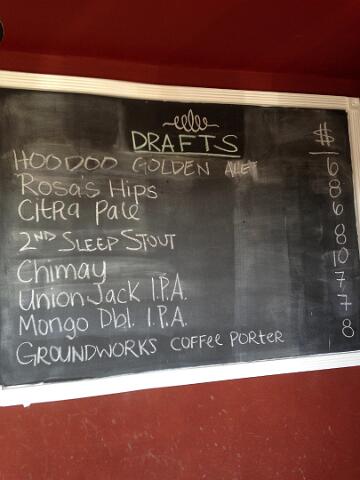 DRAFTS $
HOODOO GOLDEN ALE 6
Rosa's Hips 8
Citra Pale 6
2ND SLEEP STOUT 8
Chimay 10
Union Jack I.P.A. 7
Mongo Dbl. I.P.A. 7
GROUNDWORKS COFFEE PORTER 8